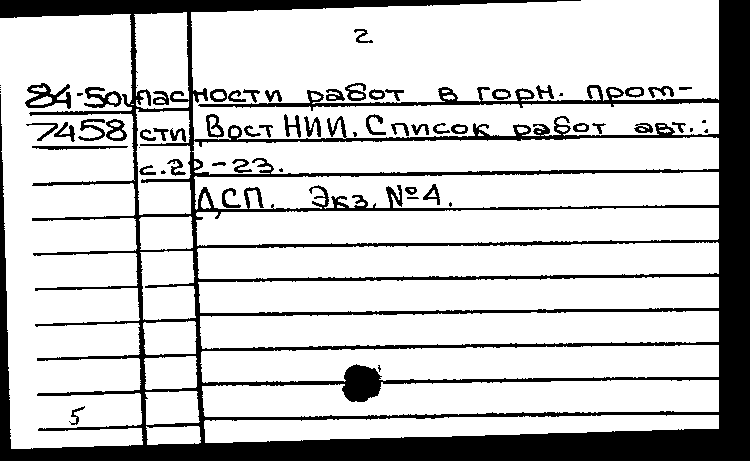 2.
84-5опасности работ в горн. пром-
7458 сти, ВостНИИ. Список работ авт.:
с.22-23.
ДСП. Экз. №4.
5